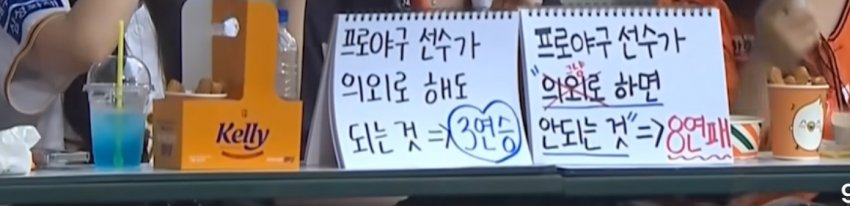 프로야구 선수가
의외로 해도
되는 것 => 3연승
프로야구 선수가
그냥
"의외로 하면
안되는 것" => 8연패
Kelly
9